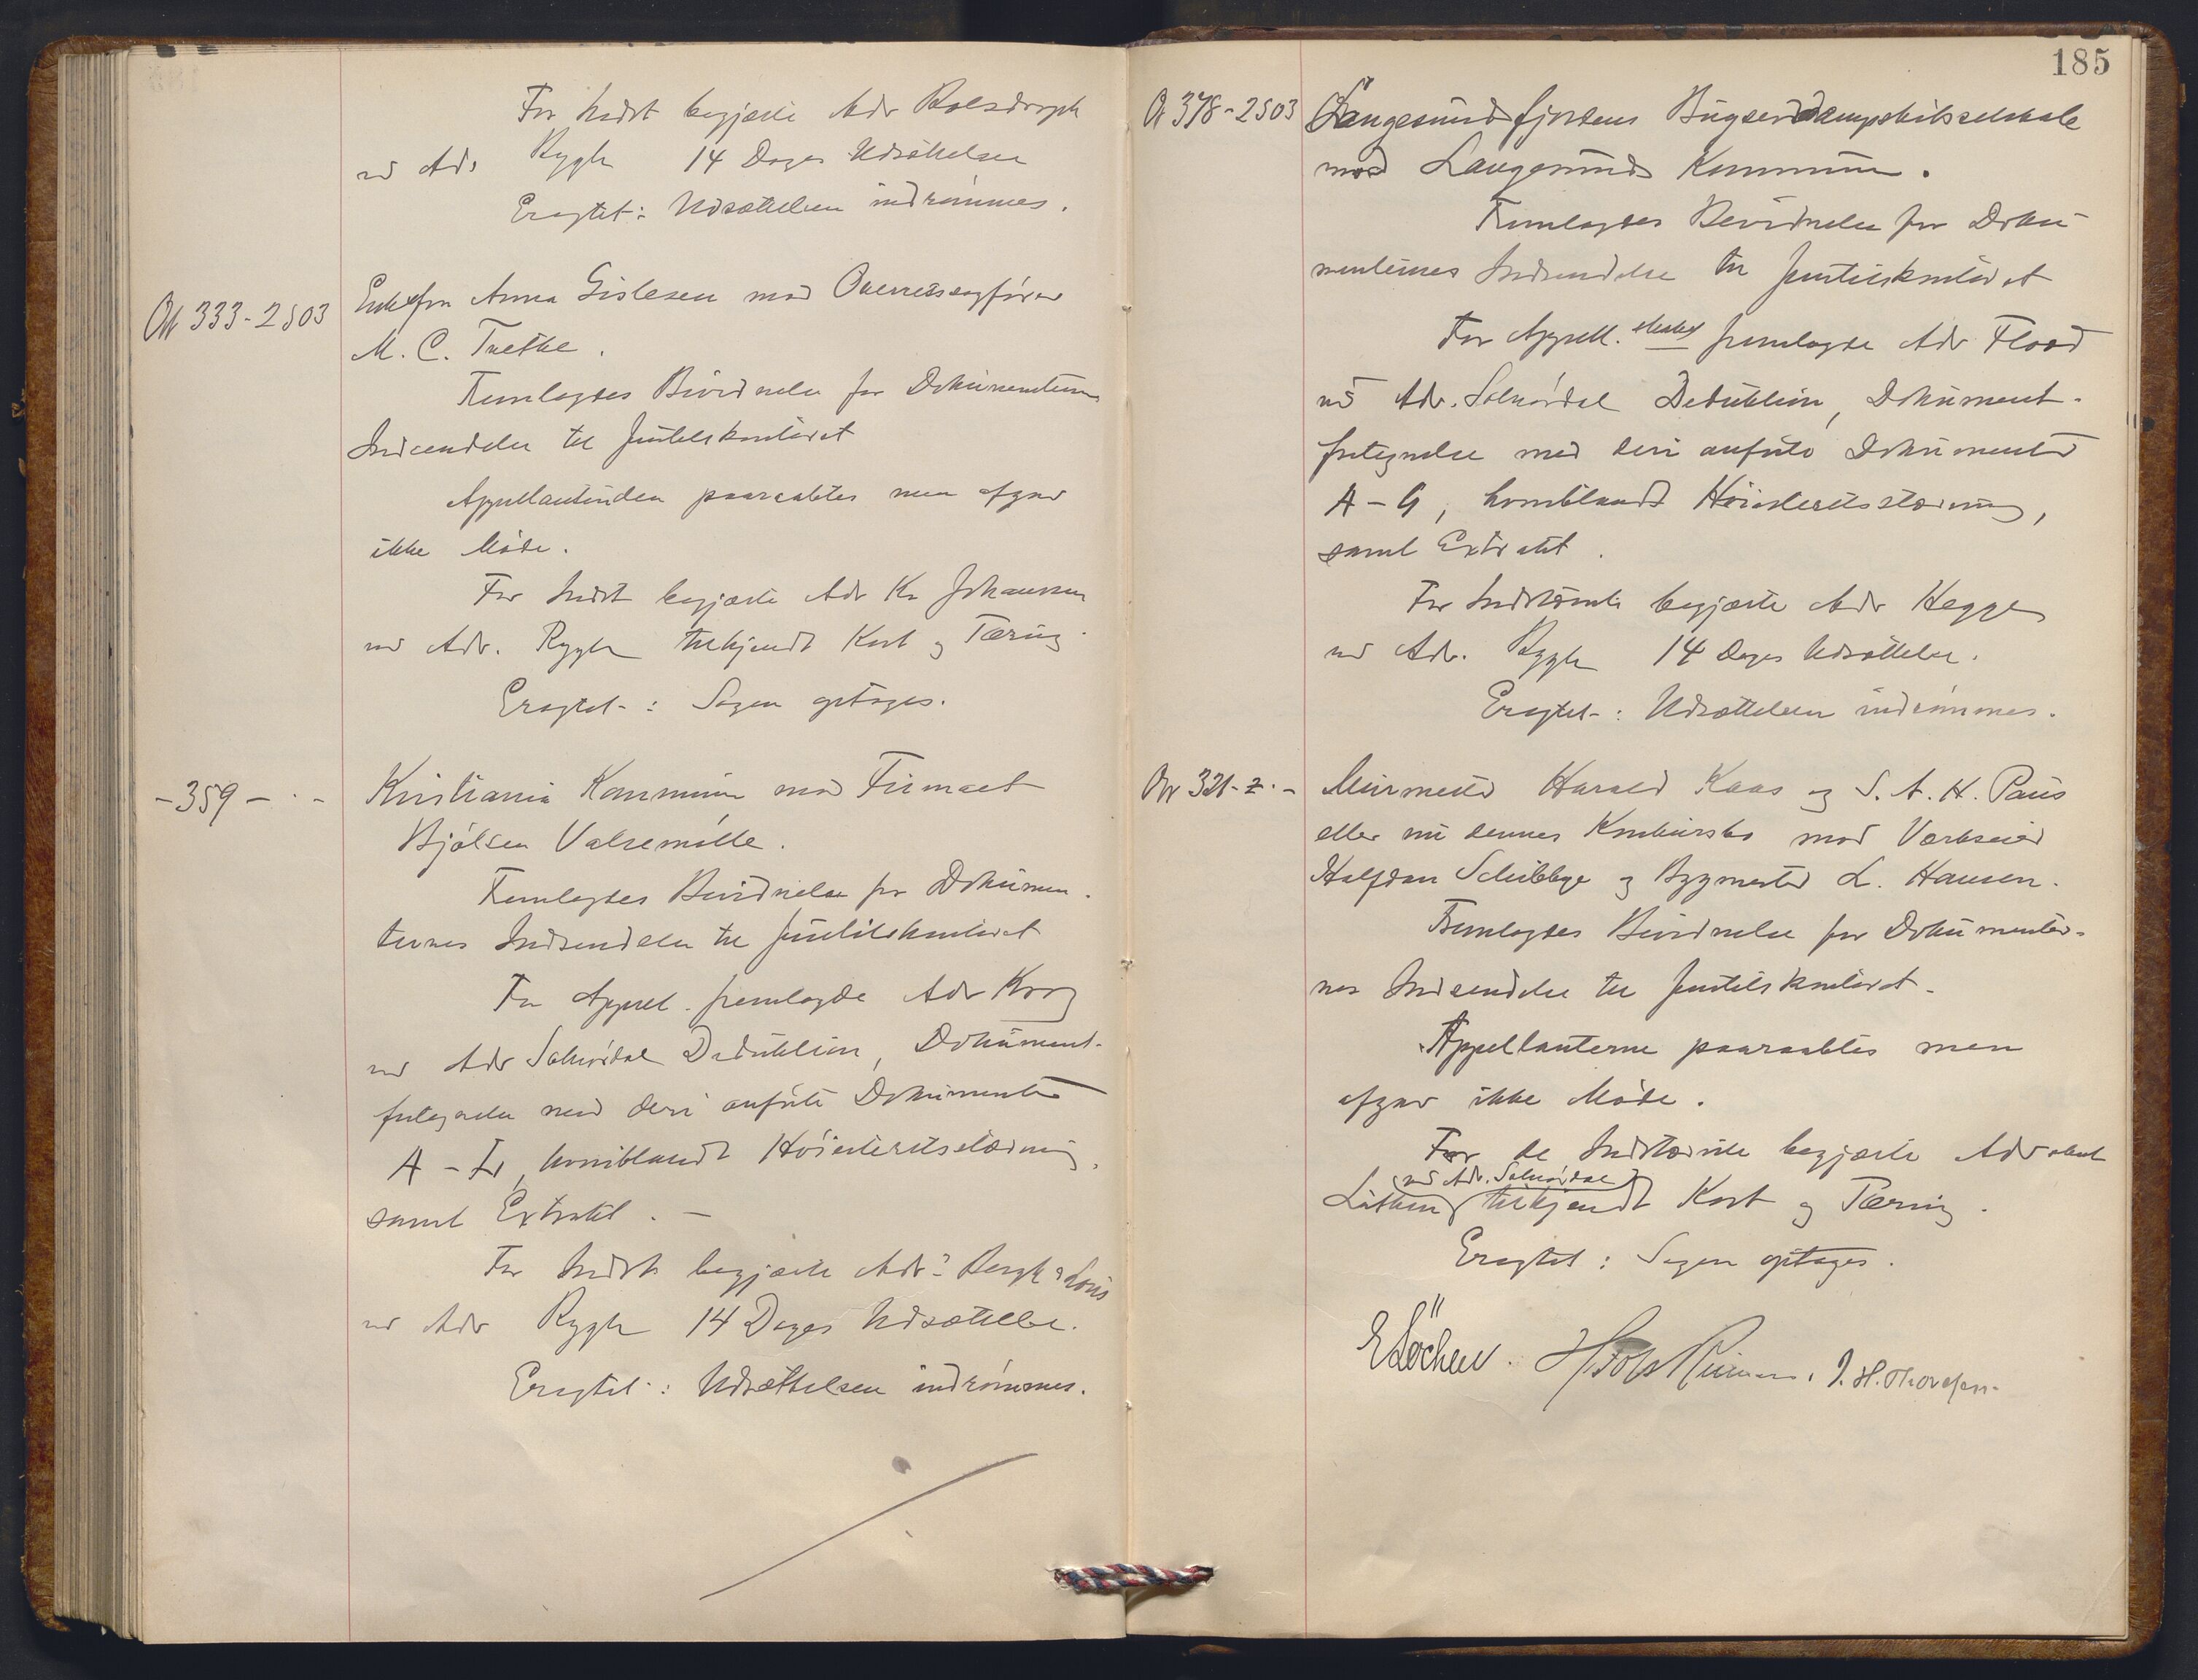 For Indst begjærte Adv Rolsdorph
ved Adv Rygh 14 Dages Udsættelse
Eragtet: Udsættelsen indrømmes.
Ov 333-2 S 03
Enkefru Anna Gislesen mod Overretssagfører
M. C. Træthe.
Fremlagdes Bevidnelse for Dokumenternes
Indsendelse til Justitskontoret
Appellantinden paaraabtes men afgav
ikke Møde.
For Indst begjærte Adv Kr Johanssen
ved Adv. Rygh tilkjendt Kost og Tæring
Eragtet: Sagen optages.
-359- · -
Kristiania Kommune mod Firmaet
Bjølsen Valsemølle.
Fremlagdes Bevidnelse for Dokumen-
ternes Indsendelse til Justitskontoret
For Appell. fremlagde Adv Krog
ved Adv Solnørdal Deduktion, Dokument-
fortegnelse med deri anførte Dokumenter
A - L, hvoriblandt Høiesteretsstævning,
samt Extrakt. -
For Indst begjærte Adv: Bergh
ved Adv Rygh 14 Dages Udsættelse.
Eragtet: Udsættelsen indrømmes.
185
Ov 378-2 S 03
Langesundsfjordens Bugserdampskibsselskab
mod Langesunds Kommune.
Fremlagdes Bevidnelse for Doku-
menternes Indsendelse til Justitskontoret
For Appell. fremlagde Adv Flood
ved Adv. Solnørdal Deduktion, Dokument-
fortegnelse med deri anførte Dokumenter
A - G, hvoriblandt Høiesteretsstævning,
samt Extrakt.
For Indstævnte begjærte Adv Hegge
ved Adv. Rygh 14 Dages Udsættelse.
Eragtet: Udsættelsen indrømmes.
Ov 321-2 · -
Murmester Harald Kaas og S. A. H. Paus
eller nu dennes Konkursbo mod Værkseier
Halfdan Schibbye og Bygmester L. Hansen.
Fremlagdes Bevidnelse for Dokumenter-
nes Indsendelse til Justitskontoret.
Appellanterne paaraabtes men
afgav ikke Møde.
For de Indstævnte begjærte Advokat
ved Adv. Solnørdal
Lütken tilkjendt Kost og Tæring.
Eragtet: Sagen optages.
E Løchen. J. H. Thoresen.